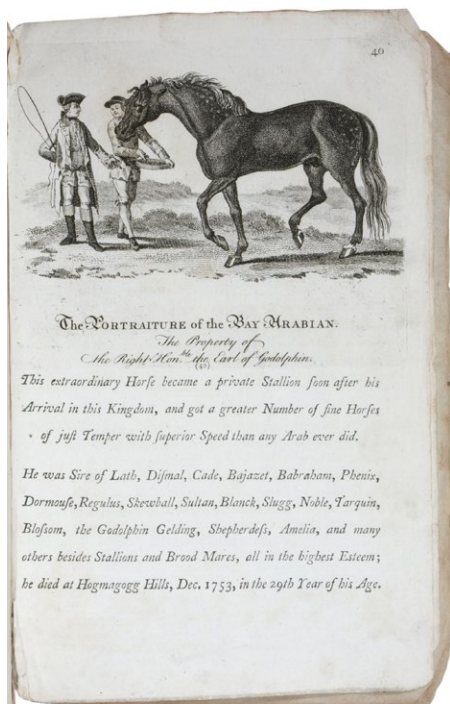 40
The PORTRAITURE of the BAY ARABIAN.
The Property of
the Right Hon.ble the Earl of Godolphin.
(40)
This extraordinary Horſe became a private Stallion ſoon after his
Arrival in this Kingdom, and got a greater Number of fine Horſes
of juſt Temper with ſuperior Speed than any Arab ever did.
He was Sire of Lath, Diſmal, Cade, Bajazet, Babraham, Phenix,
Dormouſe, Regulus, Skewball, Sultan, Blanck, Slugg, Noble, Tarquin,
Bloſſom, the Godolphin Gelding, Shepherdeſs, Amelia, and many
others besides Stallions and Brood Mares, all in the higheſt Eſteem;
he died at Hogmagogg Hills, Dec. 1753, in the 29th Year of his Age.